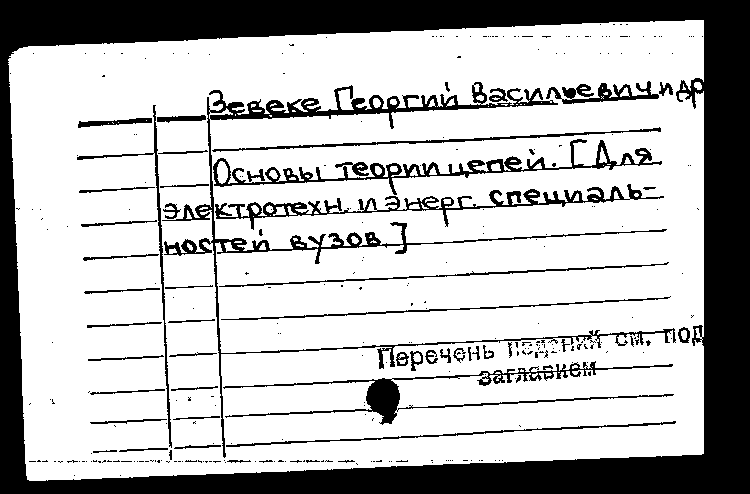 Зевеке, Георгий Васильевич и др
Основы теории цепей. [Для
электротехн. и энерг. специаль-
ностей вузов.]
Перечень изданий см. под
заглавием